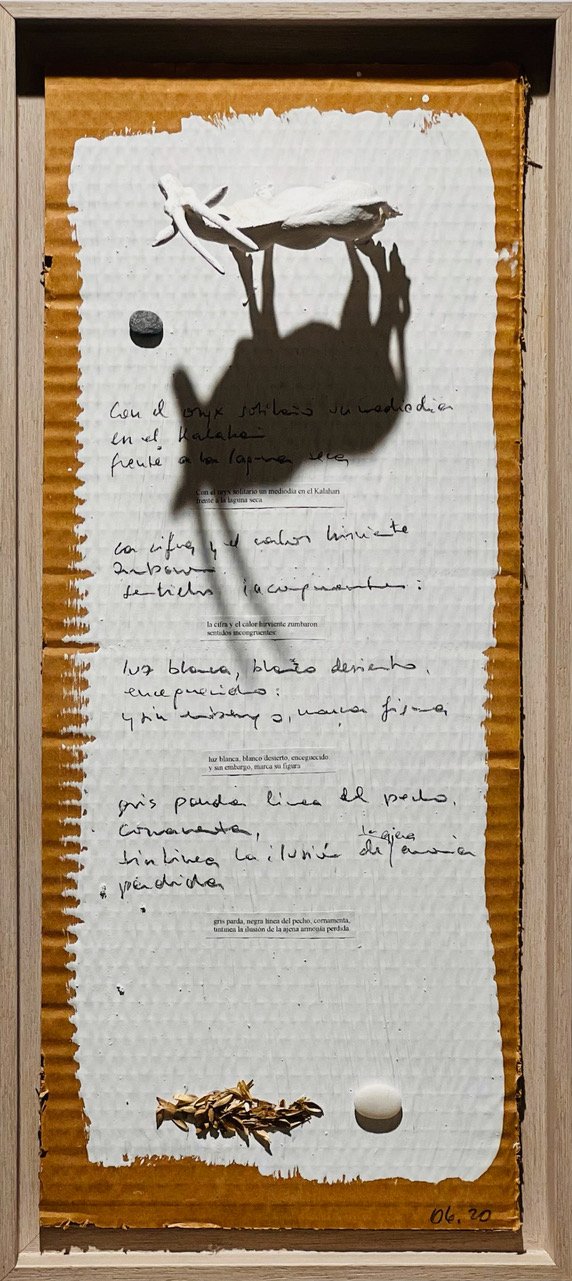 Con el oryx solitario un mediodia
en el Kalahari
frente a la laguna seca
Con el oryx solitario un mediodía en el Kalahari
frente a la laguna seca.
la cifra y el calor hirviente
zumbaron
sentidos incongruentes:
la cifra y el calor hirviente zumbaron
sentidos incongruentes:
luz blanca, blanco desierto,
enceguecido:
y sin embargo, marca su figura
luz blanca, blanco desierto, enceguecido:
y sin embargo, marca su figura
gris parda línea del pecho,
cornamenta,
la ajena
tintinea la ilusión de armonía
perdida
gris parda, negra línea del pecho, cornamenta,
tintinea la ilusión de la ajena armonía perdida.
06.20